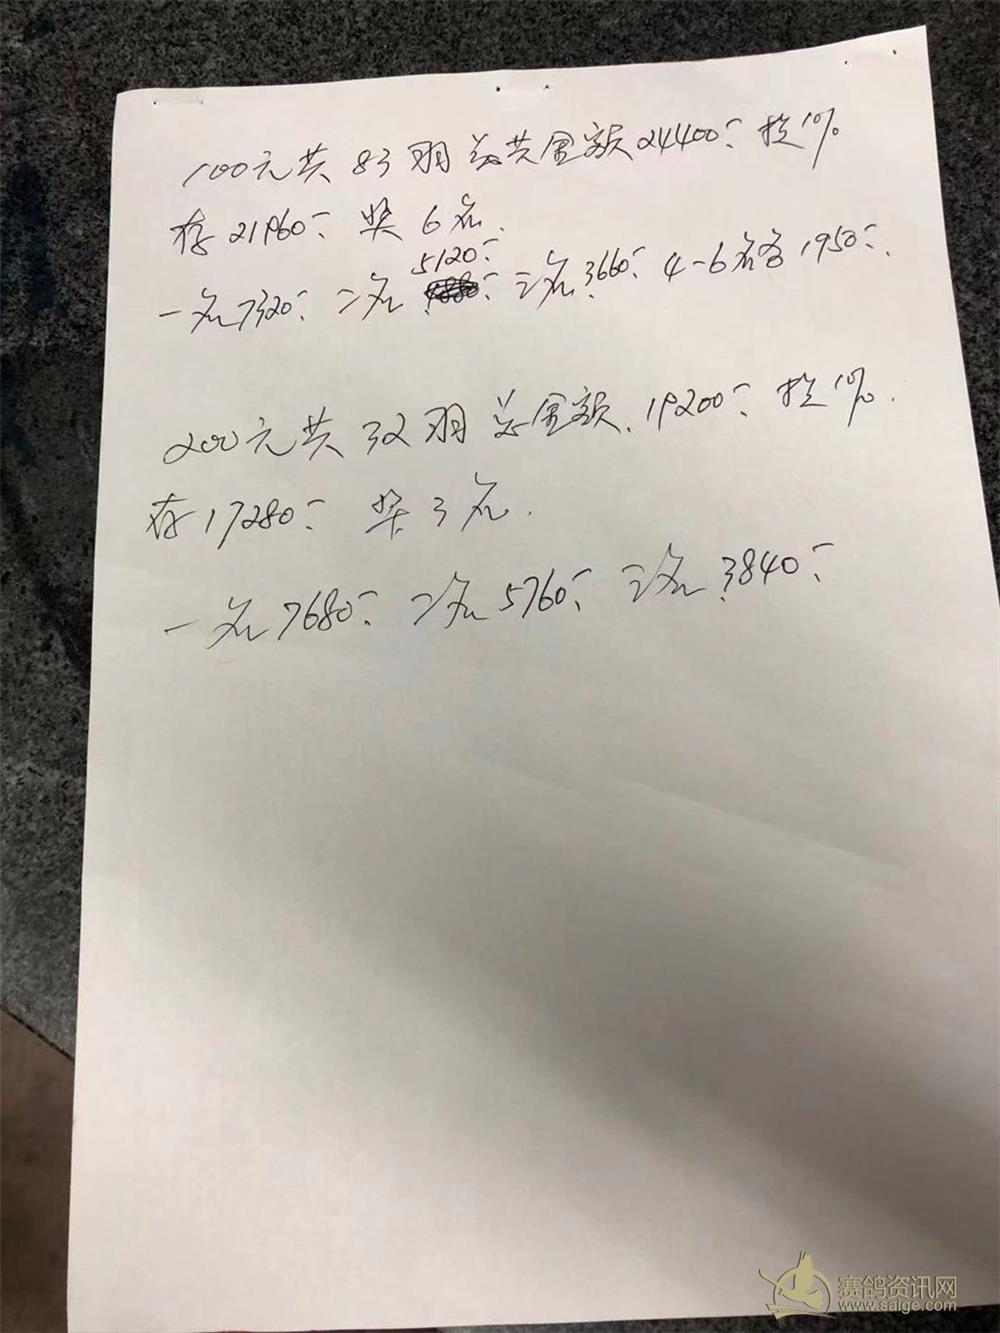 100元共83羽总共金额24400元 扣10%
存21960元 奖6名.
5120元
一名7320元 二名 三名3660元 4-6名各1950元.
200元共32羽总金额19200元 扣10%.
存17280元 奖3名.
一名7680元 二名5760元 三名3840元
赛鸽资讯网
www.saige.com